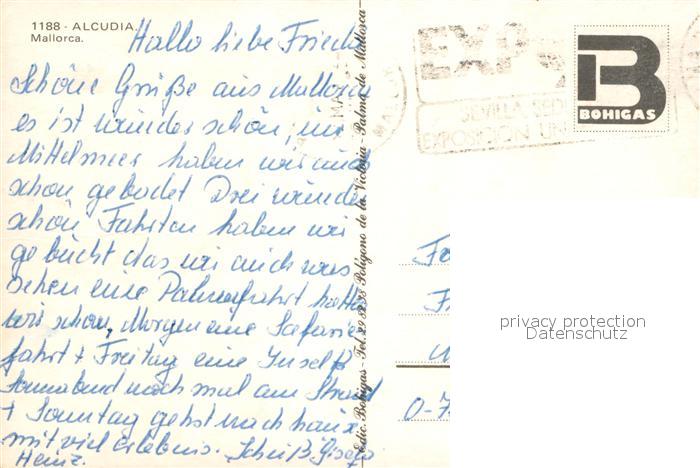 1188 - ALCUDIA.
Mallorca.
Hallo liebe Frieda
Schöne Grüße aus Mallorca
es ist wunder schön, im
Mittelmeer haben wir auch
schon gebadet Drei wunder
schön Fahrten haben wir
gebucht das wir auch was
sehen eine Palmafahrt hatten
wir schon, Morgen eine Safarie
fahrt + Freitag eine Inself
Sonnabend noch mal am Strand
+ Sonntag gehst nach hause
mit viel erlebnis. Gisela
Heinz.
Edic. Bohigas - Tel. Polígono de la Victoria - Palma de Mallorca
MALLORCA
EXPO
SEVILLA SEDE
EXPOSICION UNI
B
BOHIGAS
Fr
O-7
privacy protection
Datenschutz